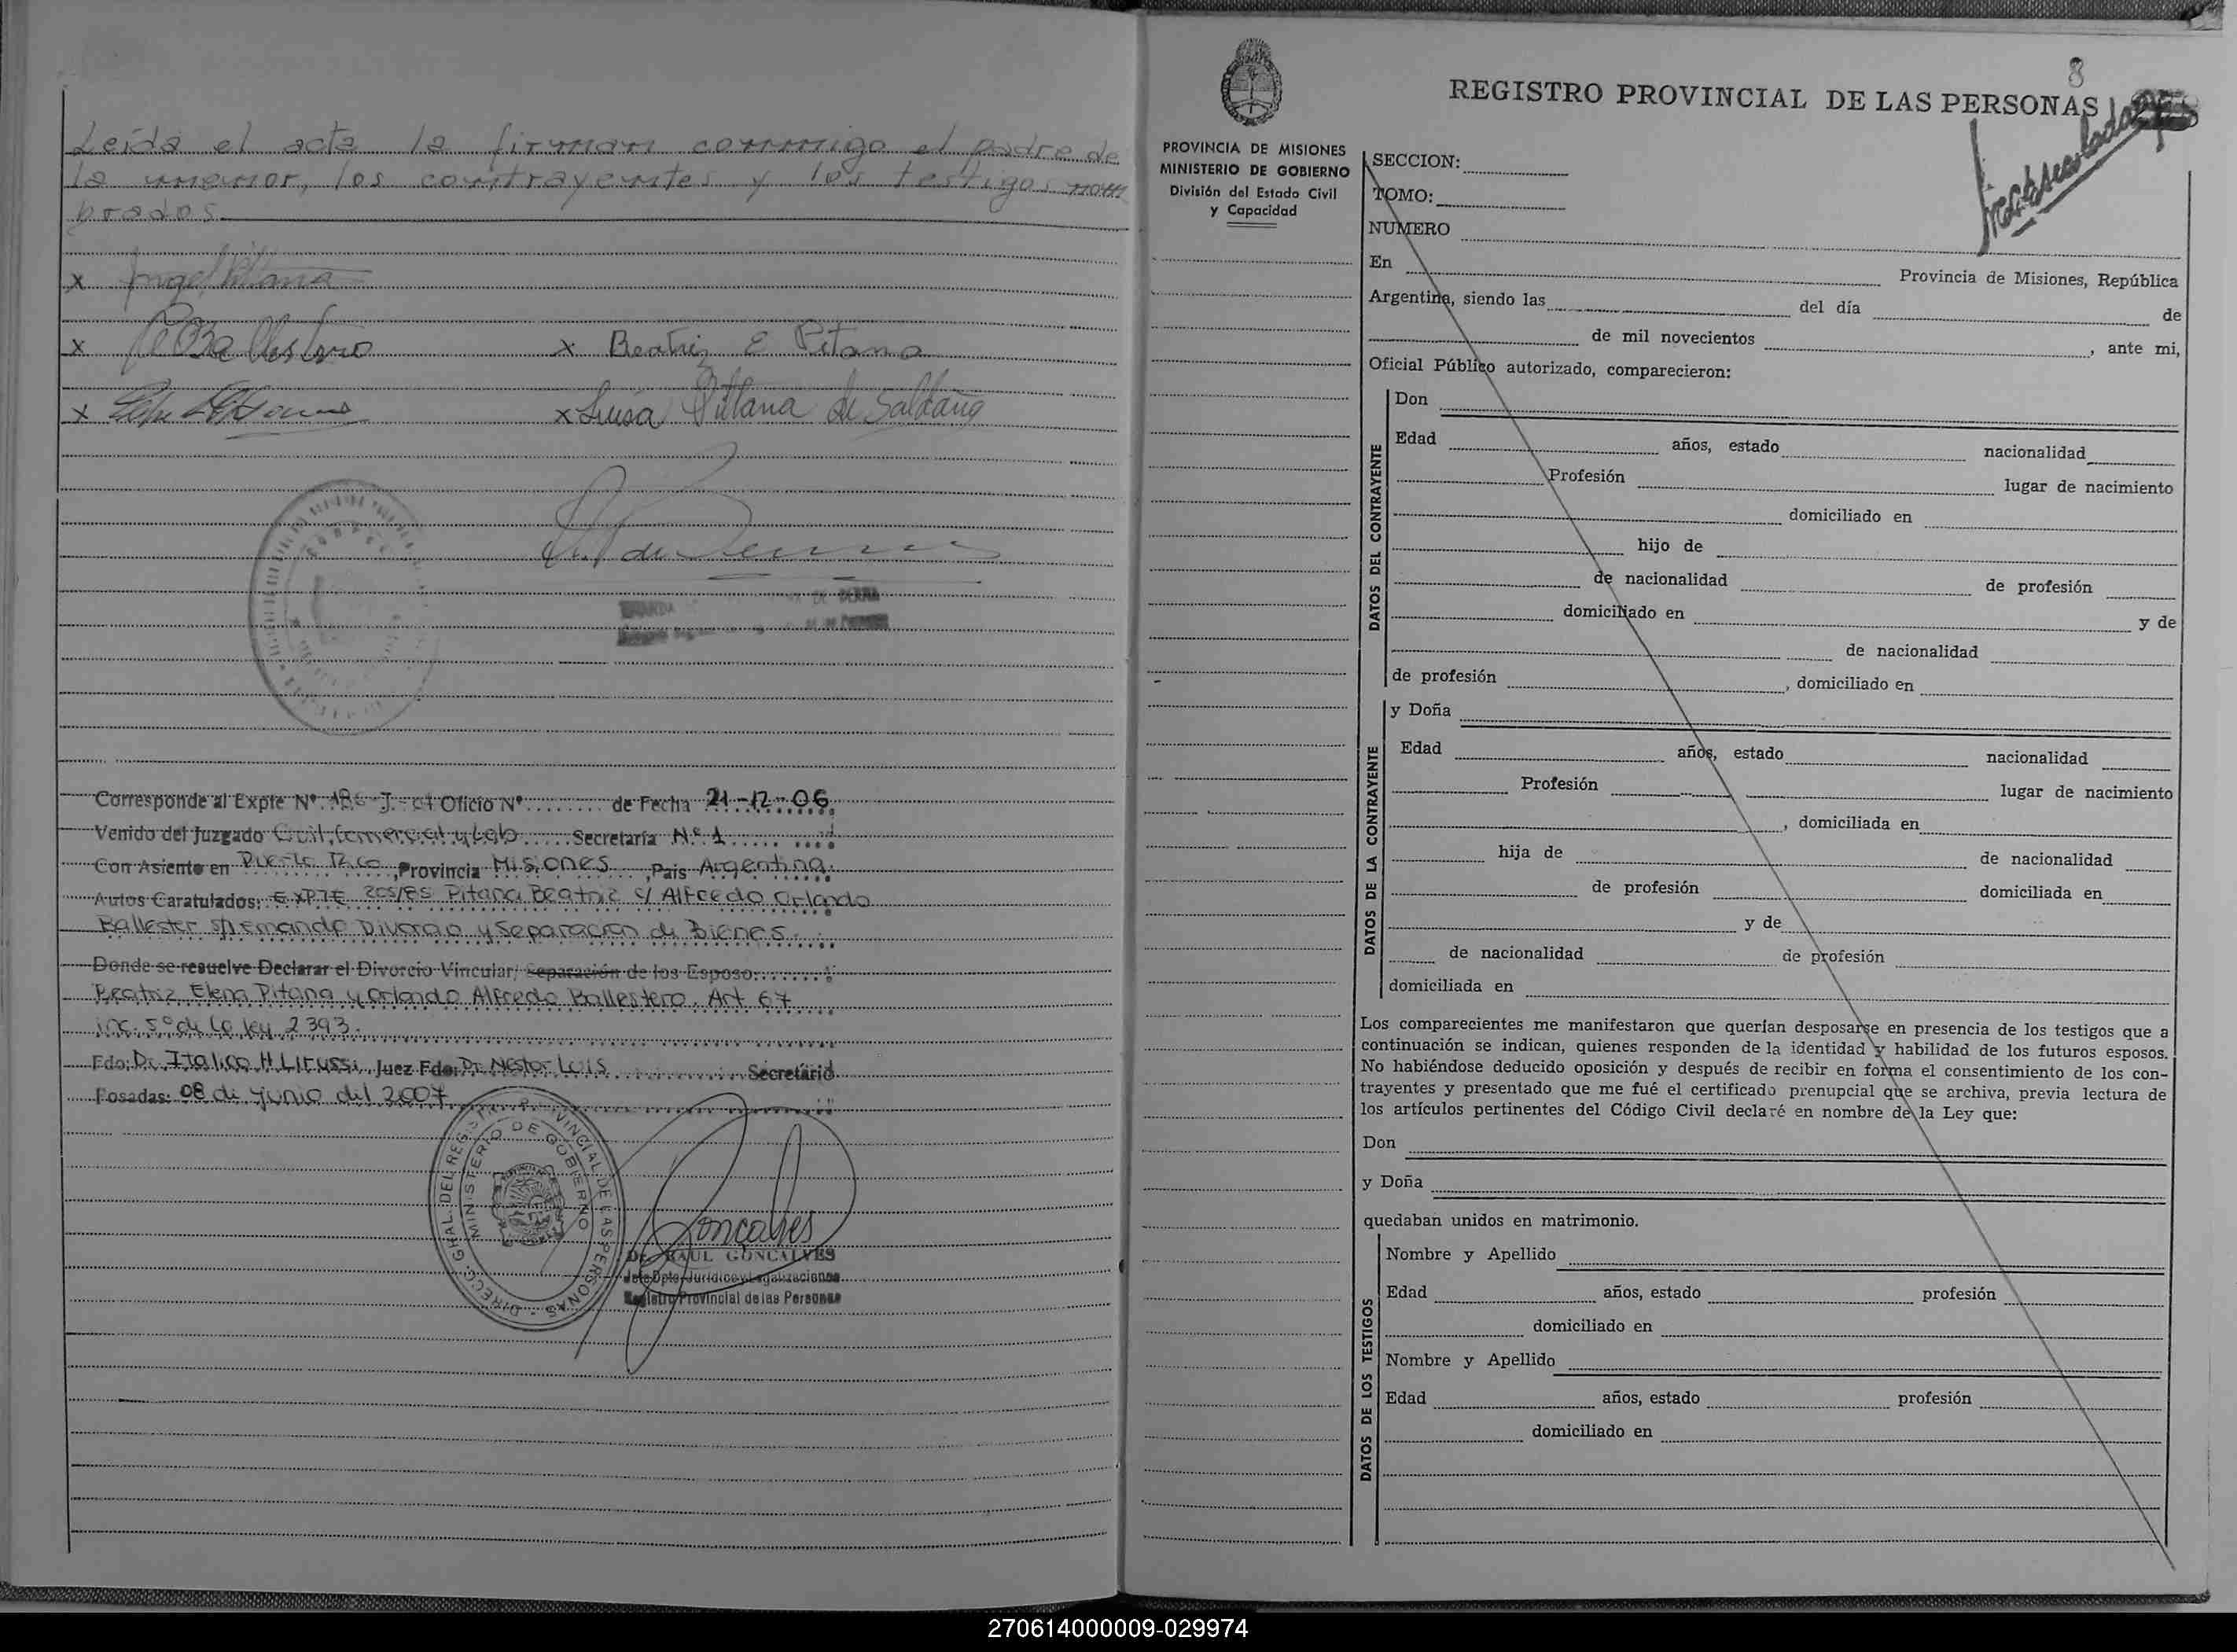 Leída el acta la firman conmigo el padre de
la menor, los contrayentes y los testigos nom
brados.
x Angel Pitana
x x Beatriz E Pitana
x x Luisa Pitana de Saldaña
DE
Corresponde al Expte Nº Oficio Nº de Fecha 21-12-06
Venido del Juzgado Civil, Comercial y Lab Secretaría Nº 1
Con Asiento en Puerto Rico, Provincia Misiones, País Argentina
Autos Caratulados: EXPTE Pitana Beatriz c/ Alfredo Orlando
Ballester s/ Demanda Divorcio y Separación de Bienes.
Donde se resuelve Declarar el Divorcio Vincular/ Separación de los Esposo:
Beatriz Elena Pitana y Orlando Alfredo Ballestero. Art 67
inc. 5º de la ley 2393.
Fdo: Dr. Italico H Lirussi, Juez Fdo: Dr Nestor Luis Secretario
Posadas: 08 de junio del 2007
DIRECC. GRAL. DEL REGIS. PROVINCIAL DE LAS PERSONAS
MINISTERIO DE GOBIERNO
Goncalves
Dr. RAUL GONCALVES
Jefe Dpto. Jurídico y Legalizaciones
Registro Provincial de las Personas
8
REGISTRO PROVINCIAL DE LAS PERSONAS
PROVINCIA DE MISIONES
MINISTERIO DE GOBIERNO
División del Estado Civil
y Capacidad
SECCION:
TOMO:
NUMERO
En Provincia de Misiones, República
Argentina, siendo las del día de
de mil novecientos , ante mi,
Oficial Público autorizado, comparecieron:
DATOS DEL CONTRAYENTE
Don
Edad años, estado nacionalidad
Profesión lugar de nacimiento
domiciliado en
hijo de
de nacionalidad de profesión
domiciliado en y de
de nacionalidad
de profesión , domiciliado en
DATOS DE LA CONTRAYENTE
y Doña
Edad años, estado nacionalidad
Profesión lugar de nacimiento
, domiciliada en
hija de de nacionalidad
de profesión domiciliada en
y de
de nacionalidad de profesión
domiciliada en
Los comparecientes me manifestaron que querían desposarse en presencia de los testigos que a
continuación se indican, quienes responden de la identidad y habilidad de los futuros esposos.
No habiéndose deducido oposición y después de recibir en forma el consentimiento de los con-
trayentes y presentado que me fué el certificado prenupcial que se archiva, previa lectura de
los artículos pertinentes del Código Civil declaré en nombre de la Ley que:
Don
y Doña
quedaban unidos en matrimonio.
DATOS DE LOS TESTIGOS
Nombre y Apellido
Edad años, estado profesión
domiciliado en
Nombre y Apellido
Edad años, estado profesión
domiciliado en
270614000009-029974